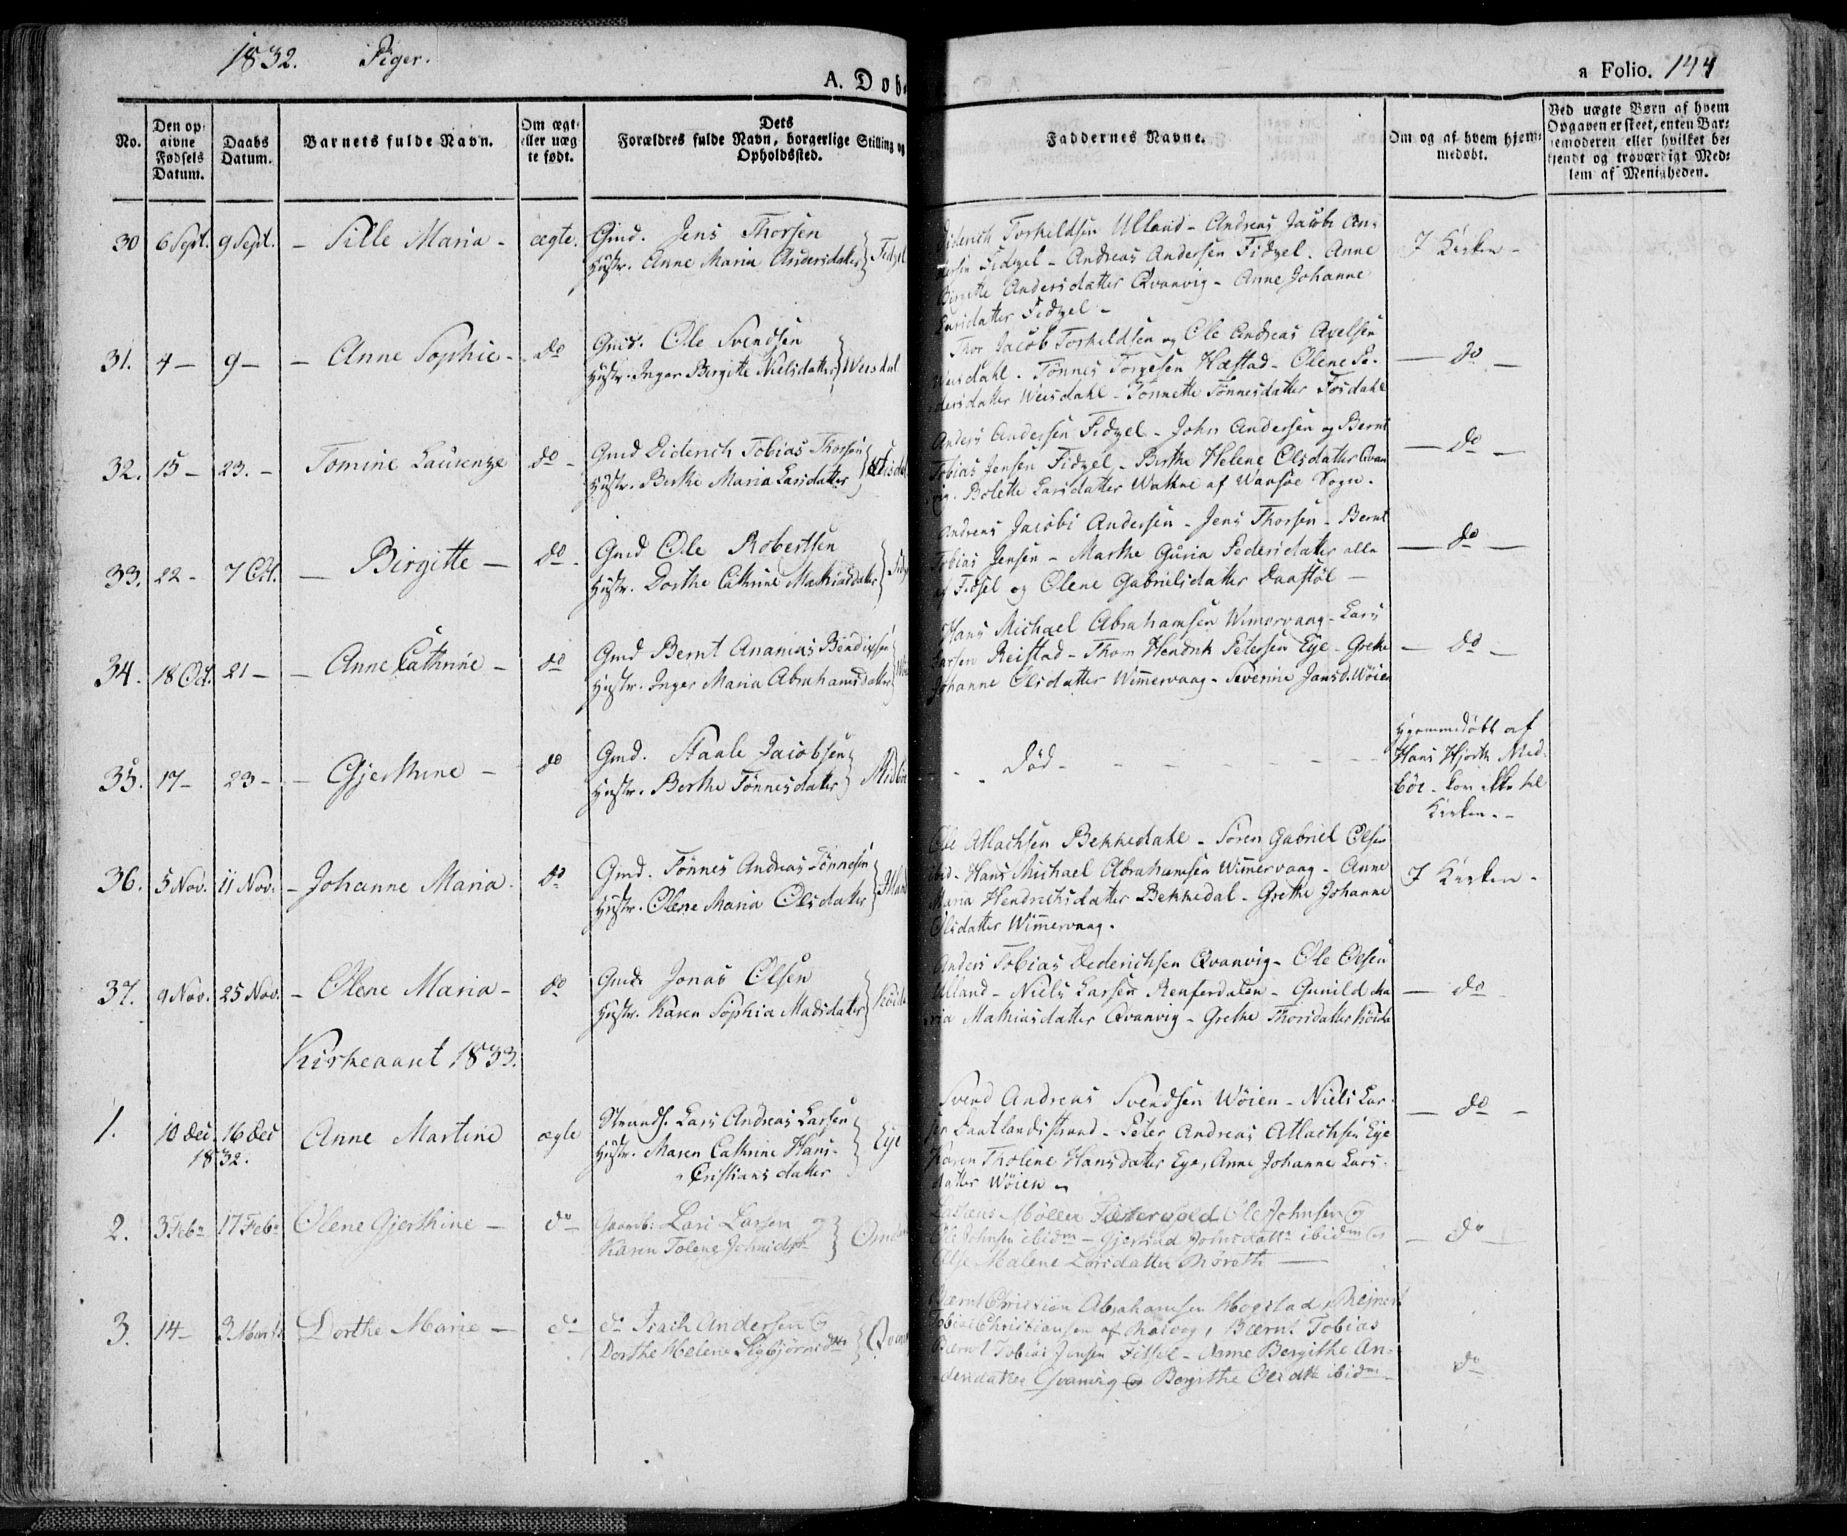 1832. Piger.
A. Dob
a Folio. 144
No.
Den op-
givne
Fødsels
Datum.
Daabs
Datum.
Barnets fulde Navn.
Om ægte
eller uæg
te født.
Dets
Forældres fulde Navn, borgerlige Stilling og
Opholdssted.
Faddernes Navne.
Om og af hvem hjem-
medøbt.
Ved uægte Børn af hvem
Opgaven er skeet, enten Bar-
nemoderen eller hvilket be-
kjendt og troværdigt Med-
lem af Menigheden.
30 6 Sept. 9 Sept. - Sille Maria - ægte.
Gmd. Jens Thorsen
Hustr. Anne Maria Andersdatter
Diderich Torkeldsen Ulland - Andreas Jacobi An-
dersen Fidzel - Andreas Andersen Fidzel. Anne
Birgitte Andersdatter Qvanvig - Anne Johanne
Larsdatter Fidzel -
I Kirken -
31. 4 - 9 - - Anne Sophie - do
Gmd. Ole Svendsen
Hustr. Inger Birgitte Nielsdatter
Thor Jacob Torkeldsen og Ole Andreas Axelsen
Weisdahl. Tønnes Torgesen Hæstad - Olene Pe-
dersdatter Weisdahl - Tonnette Tønnesdatter Fosdahl
- do -
32. 15 - 23. - Tomine Laurenze do -
Gmd Diderich Tobias Thorsen
Hustr. Berthe Maria Larsdatter
Anders Andersen Fidzel - John Andersen og Bernt
Tobias Jensen Fidzel - Berthe Helene Olsdatter Qvan
vig. Bolette Larsdatter Wathne af Wansøe Sogn.
- do -
33. 22 - 7 Oct. - Birgitte - do -
Gmd Ole Robertsen
Hustr. Dorthe Cathrine Mathiasdatter
Andreas Jacobi Andersen - Jens Thorsen - Bernt
Tobias Jensen - Marthe Guria Pedersdatter alle
af Fidsel og Olene Gabrielsdatter Daastøl -
- do -
34. 18 Oct. 21 - - Anne Cathrine - do
Gmd Bernt Ananias Bendixsen
Hustr. Inger Maria Abrahamsdatter
Hans Michael Abrahamsen Wimervaag - Lars
Larsen Reistad - Thom Hendrik Petersen Eye - Grethe
Johanne Olsdatter Wimmervaag - Severine Jansd. Wøien
- do -
35. 17 - 23 - - Gjerthine - do
Gmd. Staale Jacobsen
Hustr. Berthe Tønnesdatter
Død - - - -
Hjemmedøbt af
Hans Hjorth Med-
bøe - kom ikke til
Kirken. -
36. 5 Nov. 11 Nov. - Johanne Maria. do
Gmd. Tønnes Andreas Tønnesen
Hustr. Olene Maria Olsdatter
Ole Atlachsen Bekkedahl - Søren Gabriel Olsen
ibid - Hans Michael Abrahamsen Wimmervaag - Anne
Maria Hendrichsdatter Bekkedal - Grethe Johanne
Olsdatter Wimmervaag.
I Kirken -
37. 9 Nov. 25 Nov. - Olene Maria - do
Gmd. Jonas Olsen
Hustr. Karen Sophia Madsdatter
Anders Tobias Dederichsen Qvanvig - Ole Olsen
Ulland - Niels Larsen Renferdalen - Gunild Ma
ria Mathiasdatter Qvanvig - Grethe Thorsdatter
- do -
Kirkeaaret 1833.
1. 10 Dec. 16 Dec 1832. Anne Martine ægte
Strands. Lars Andreas Larsen
Hustr. Maren Cathrine Hans-
Cristians datter
Eye
Svend Andreas Svendsen Wøien - Niels Lar-
sen Sautlandsstrand - Peter Andreas Atlachsen Eye
Karen Tholene Hansdatter Eye, Anne Johanne Lars-
datter Wøien
- do -
2. 3 Feb. 17 Feb. Olene Gjerthine - do
Gaardb: Lars Larsen og
Karen Tolene
Ole Johnsen og
ibidm - Johnsdatter ibidm og
Malene Larsdatter
- do -
3. 14 - 3 Dorthe Marie - do
do Isach Andersen og
Dorthe Helene Sigbjørnsdtr
Bærnt Christian Abrahamsen
Tobias Christiansen af Bærnt Tobias
Bærnt Tobias Jensen Fissel - Anne Bergithe An-
dersdatter Qvanvig og Bergithe Olsdtr ibidm
do